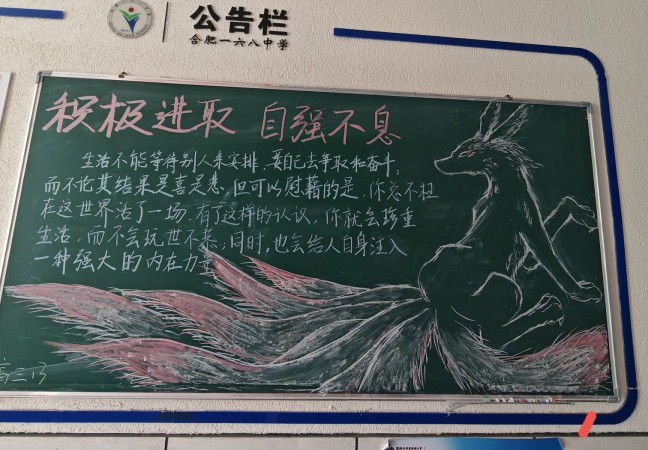 公告栏
合肥一六八中学
积极进取 自强不息
生活不能等待别人来安排，要自己去争取和奋斗；
而不论其结果是喜是悲，但可以慰藉的是，你总不枉
在这世界活了一场，有了这样的认识，你就会珍重
生活，而不会玩世不恭，同时，也会给人自身注入
一种强大的内在力量
高三13